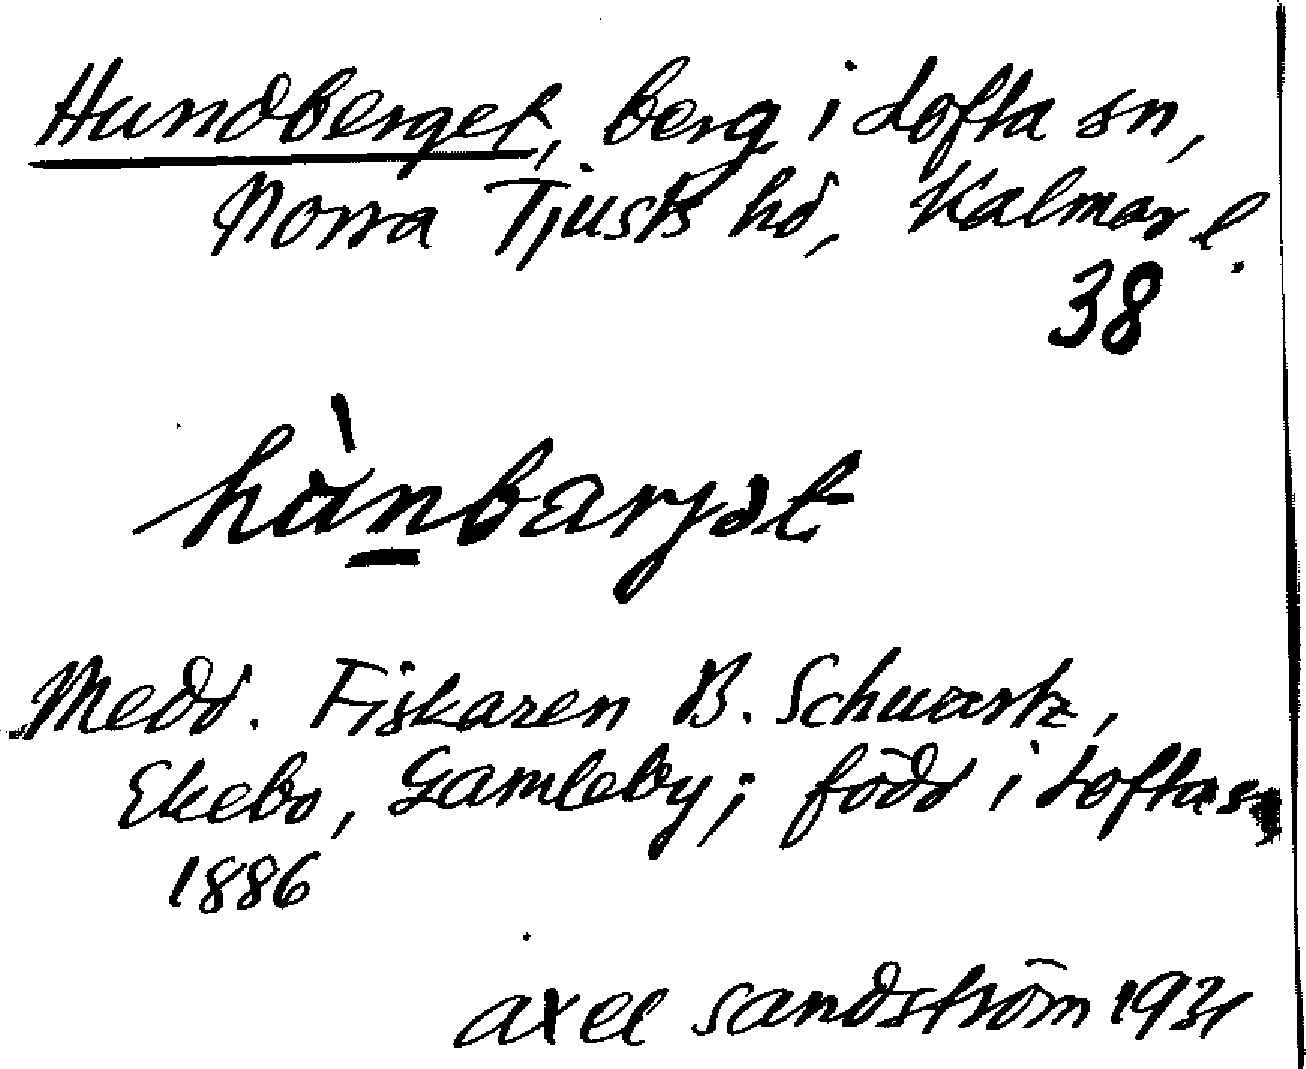 Hundberget, berg i Lofta sn,
Norra Tjusts hd, Kalmar l.
38
hànbarjat
Medd. Fiskaren B. Schwartz,
Ekebo, Gamleby; född i Lofta sn
1886
Axel Sandström 1931